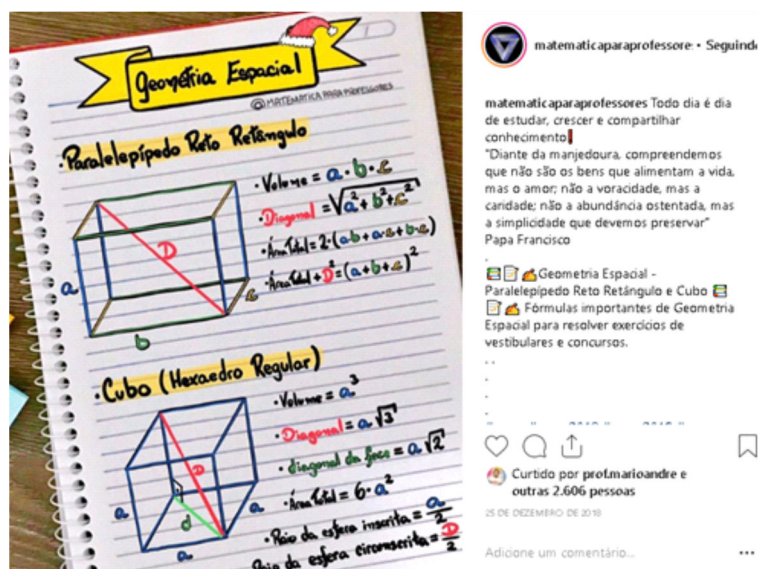 Geometria Espacial
@MATEMATICA PARA PROFESSORES
• Paralelepípedo Reto Retângulo
• Volume = a · b · c
• Diagonal = √a² + b² + c²
• Área Total = 2·(a·b + a·c + b·c)
• Área Total + D² = (a + b + c)²
D
a
b
c
• Cubo (Hexaedro Regular)
• Volume = a³
• Diagonal = a √3
• diagonal da face = a √2
• Área Total = 6 · a²
• Raio da esfera inscrita = a/2
Raio da esfera circunscrita = D/2
D
d
a
a
a
matematicaparaprofessore: • Seguind
matematicaparaprofessores Todo dia é dia
de estudar, crescer e compartilhar
conhecimento
"Diante da manjedoura, compreendemos
que não são os bens que alimentam a vida,
mas o amor; não a voracidade, mas a
caridade; não a abundância ostentada, mas
a simplicidade que devemos preservar"
Papa Francisco
.
Geometria Espacial -
Paralelepípedo Reto Retângulo e Cubo
Fórmulas importantes de Geometria
Espacial para resolver exercícios de
vestibulares e concursos.
. .
.
.
.
Curtido por prof.marioandre e
outras 2.606 pessoas
25 DE DEZEMBRO DE 2018
Adicione um comentário...